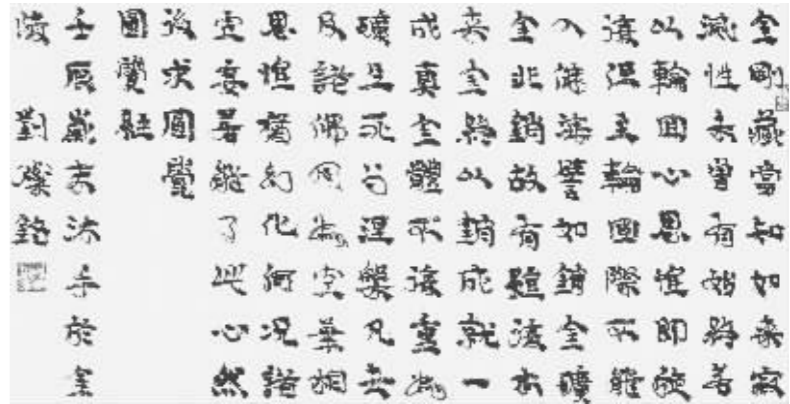 金剛藏當知如來寂
滅性未曾有始終若
以輪回心思惟即旋
復至輪回際不能
入佛海譬如銷金礦
金非銷故有雖復本
來金終以銷成就一
成真金體不復重為
礦生死與涅槃凡夫
及諸佛同為空華相
思惟猶幻化何況詰
虛妄若能了此心然
後求圓覺
圓覺經
壬辰歲末沐手於金
陵 劉燦銘